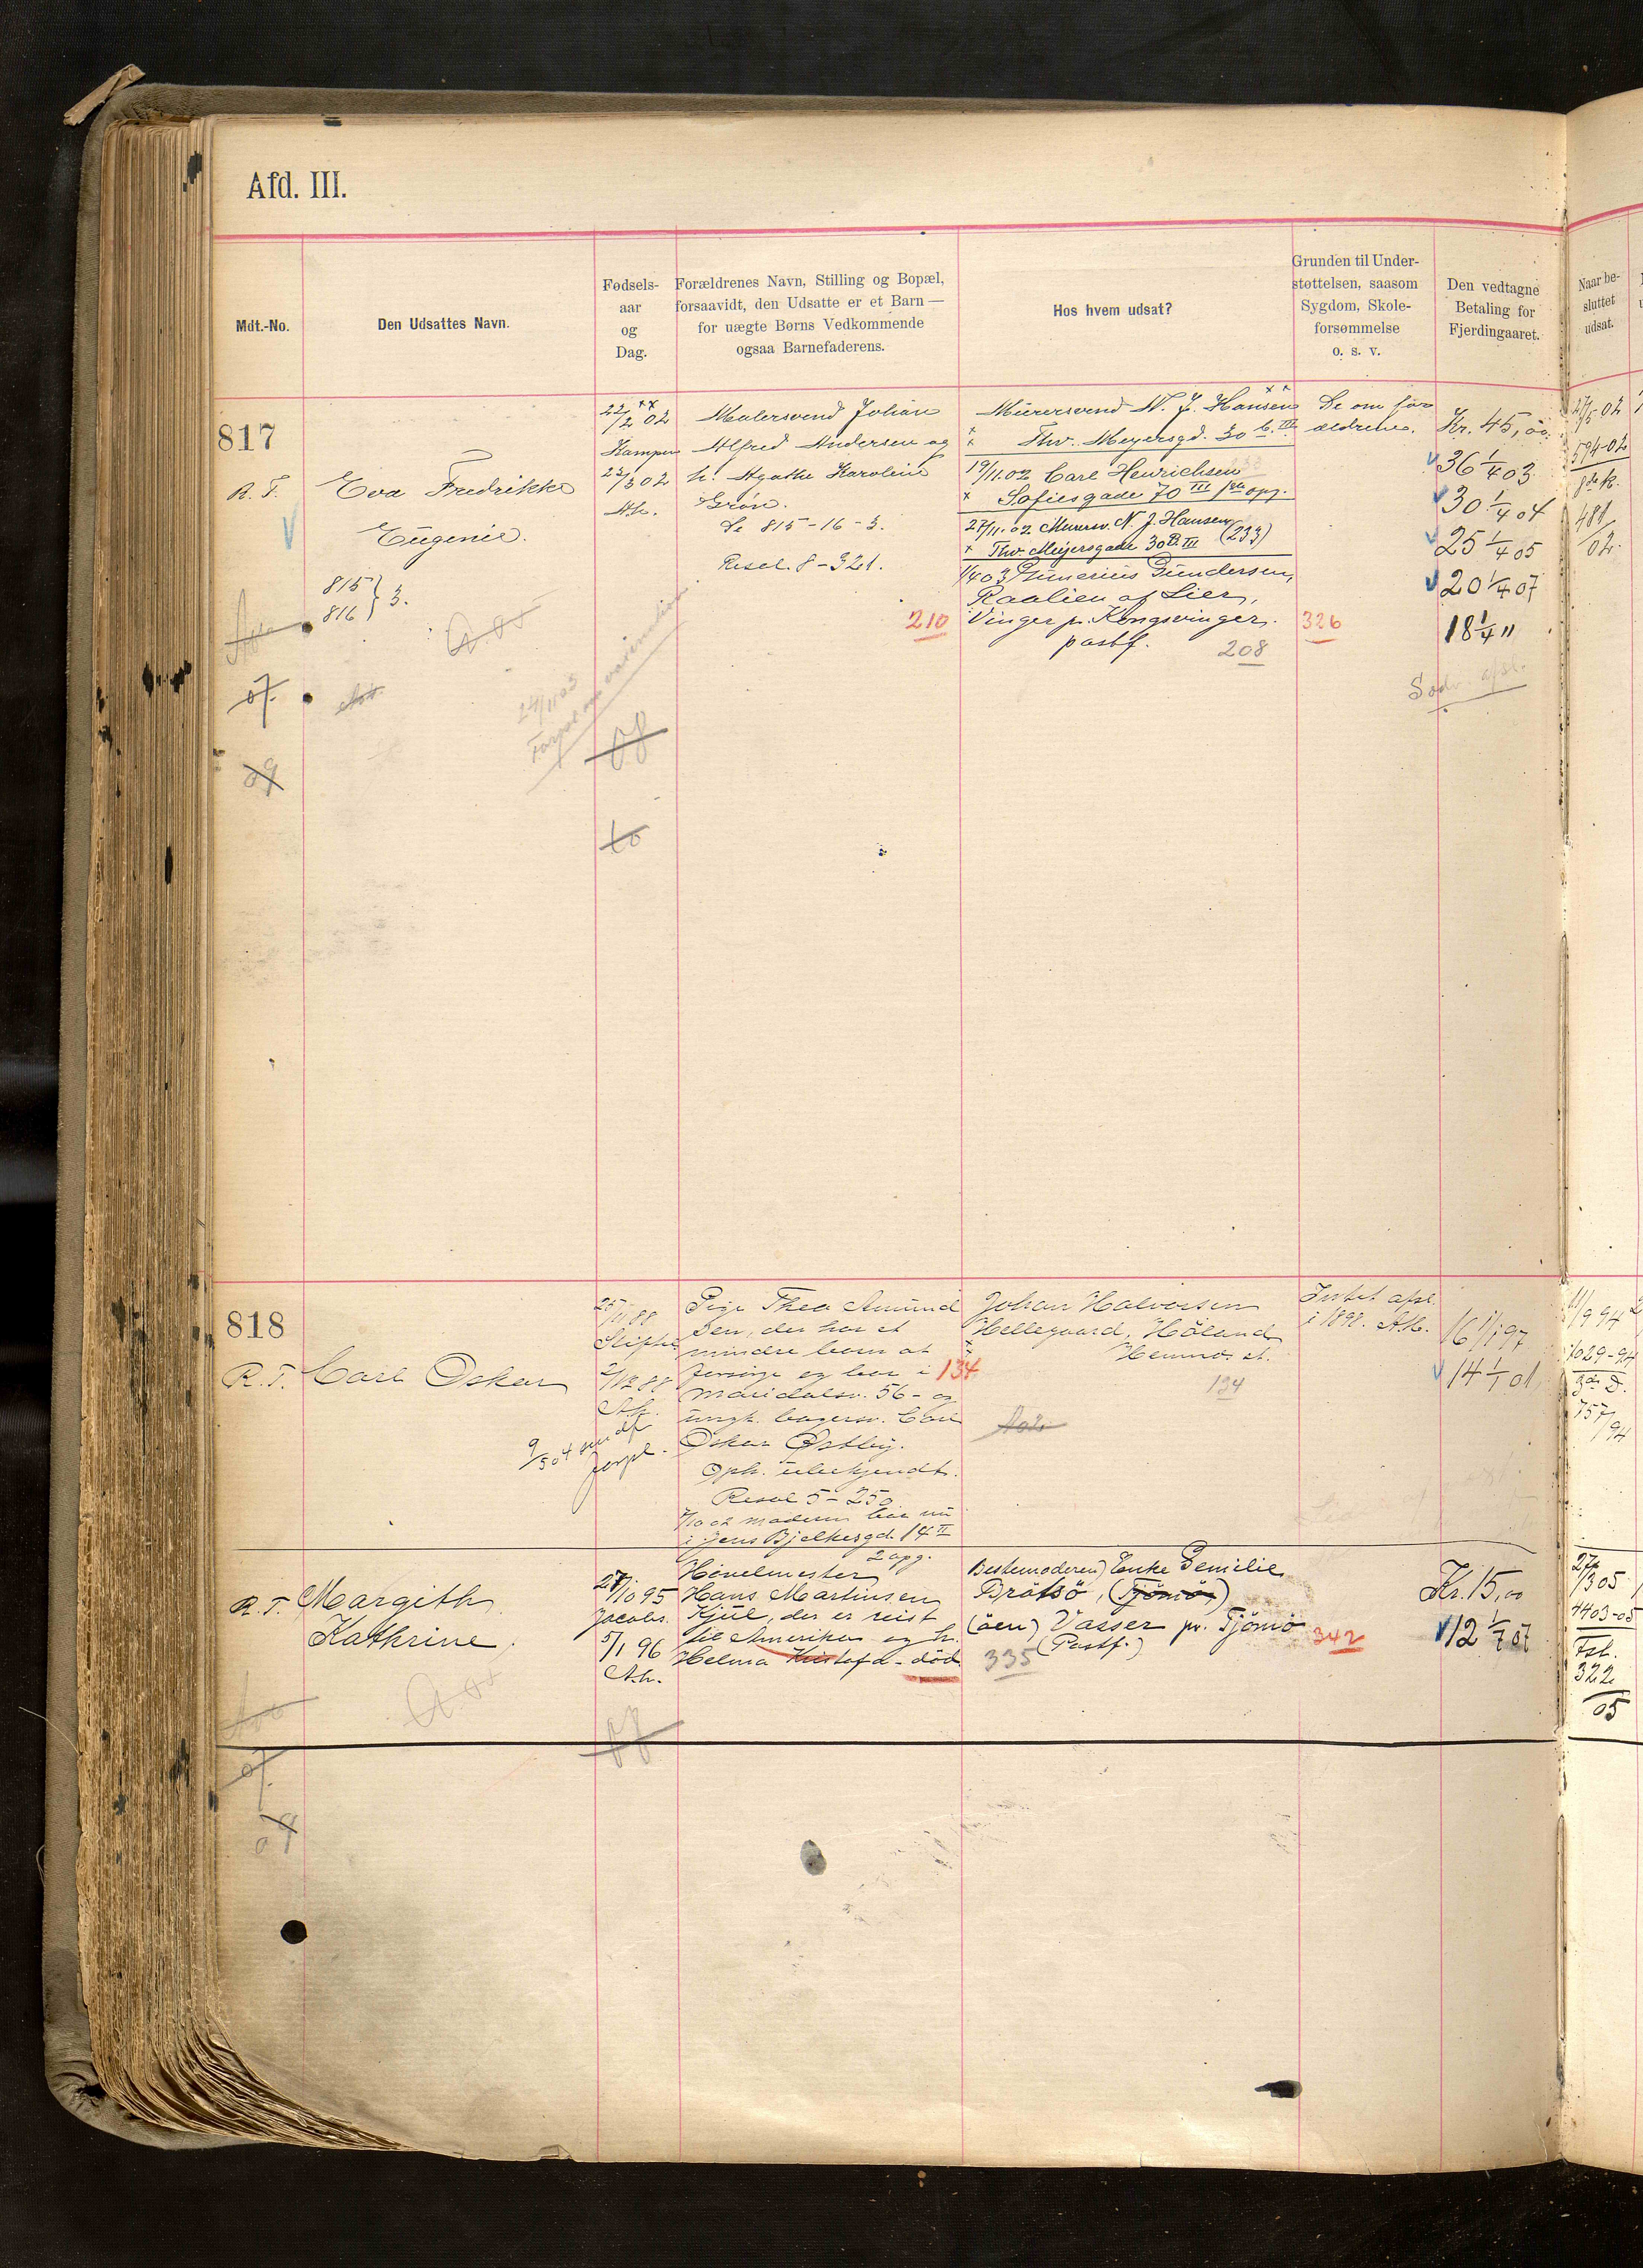 Afd. III.
Mdt.-No.
Den Udsattes Navn.
Fødsels-
aar
og
Dag.
Forældrenes Navn, Stilling og Bopæl,
forsaavidt, den Udsatte er et Barn —
for uægte Børns Vedkommende
ogsaa Barnefaderens.
Hos hvem udsat?
Grunden til Under-
støttelsen, saasom
Sygdom, Skole-
forsømmelse
o. s. v.
Den vedtagne
Betaling for
Fjerdingaaret.
Naar be-
sluttet
udsat.
817
R. T.
Eva Fredrikke
Eugenie.
815 } 3.
816
07.
09
24/11 03
08
10
22/2 02
Kampen
23/3 02
A.k.
Malersvend Johan
Alfred Andersen og
h. Agathe Karoline
Grøn.
Se 815-16-3.
Resol. 8-321.
210
Murersvend N. J. Hansen
Thv. Meyersgd. 30 b. III
19/11.02 Carl Henrichsen
Sofiesgade 70 III opg.
27/11.02 Murersv. N. J. Hansen
Thv. Meyersgade 30 B. III (233)
1/4 03 Gunerius Gundersen,
Raalien af Lier,
Vinger pr. Kongsvinger.
postf.
208
Se om for
ældrene.
326
Kr. 45,00
36 1/4 03
30 1/4 04
25 1/4 05
20 1/4 07
18 1/4 11
27/5 02
594-02
481
/02.
818
R. T. Carl Oskar
25/11 88
2/12 88
A.k.
Pige Thea Amund
sen, der har et
mindre barn at
forsørge og bor i
Maridalsv. 56 - og
ungk. bagersv. Carl
Oskar Østby.
Oph. ubekjendt.
Resol 5-250
7/10 02 moderen bor nu
i Jens Bjelkesgd. 14 II
2 opg.
134
Johan Halvorsen
Hellegaard, Høland
Hemnæs st.
134
Intet afsl.
i 1898. A.k.
16 1/1 97
14 1/1 01
11/9 94
1029-94
757/
/94
R. T. Margith
Kathrine.
07.
09
27/10 95
Jacobs.
5/1 96
A.k.
08
Høvelmester
Hans Martinsen
Kjul, der er reist
til Amerika og h.
Helma Kristofa - död
Bestemoderen) Enke Gemilie
Bråtsö, (Tjömö)
(öen) Vasser pr. Tjömö
(Postf.)
335
342
Kr. 15,00
12 1/1 07
27/3 05
4403-05
Fst.
322
05